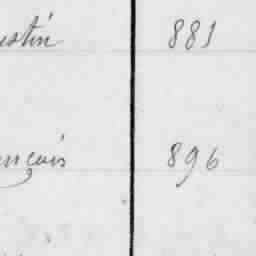 ustin 881
ançois 896